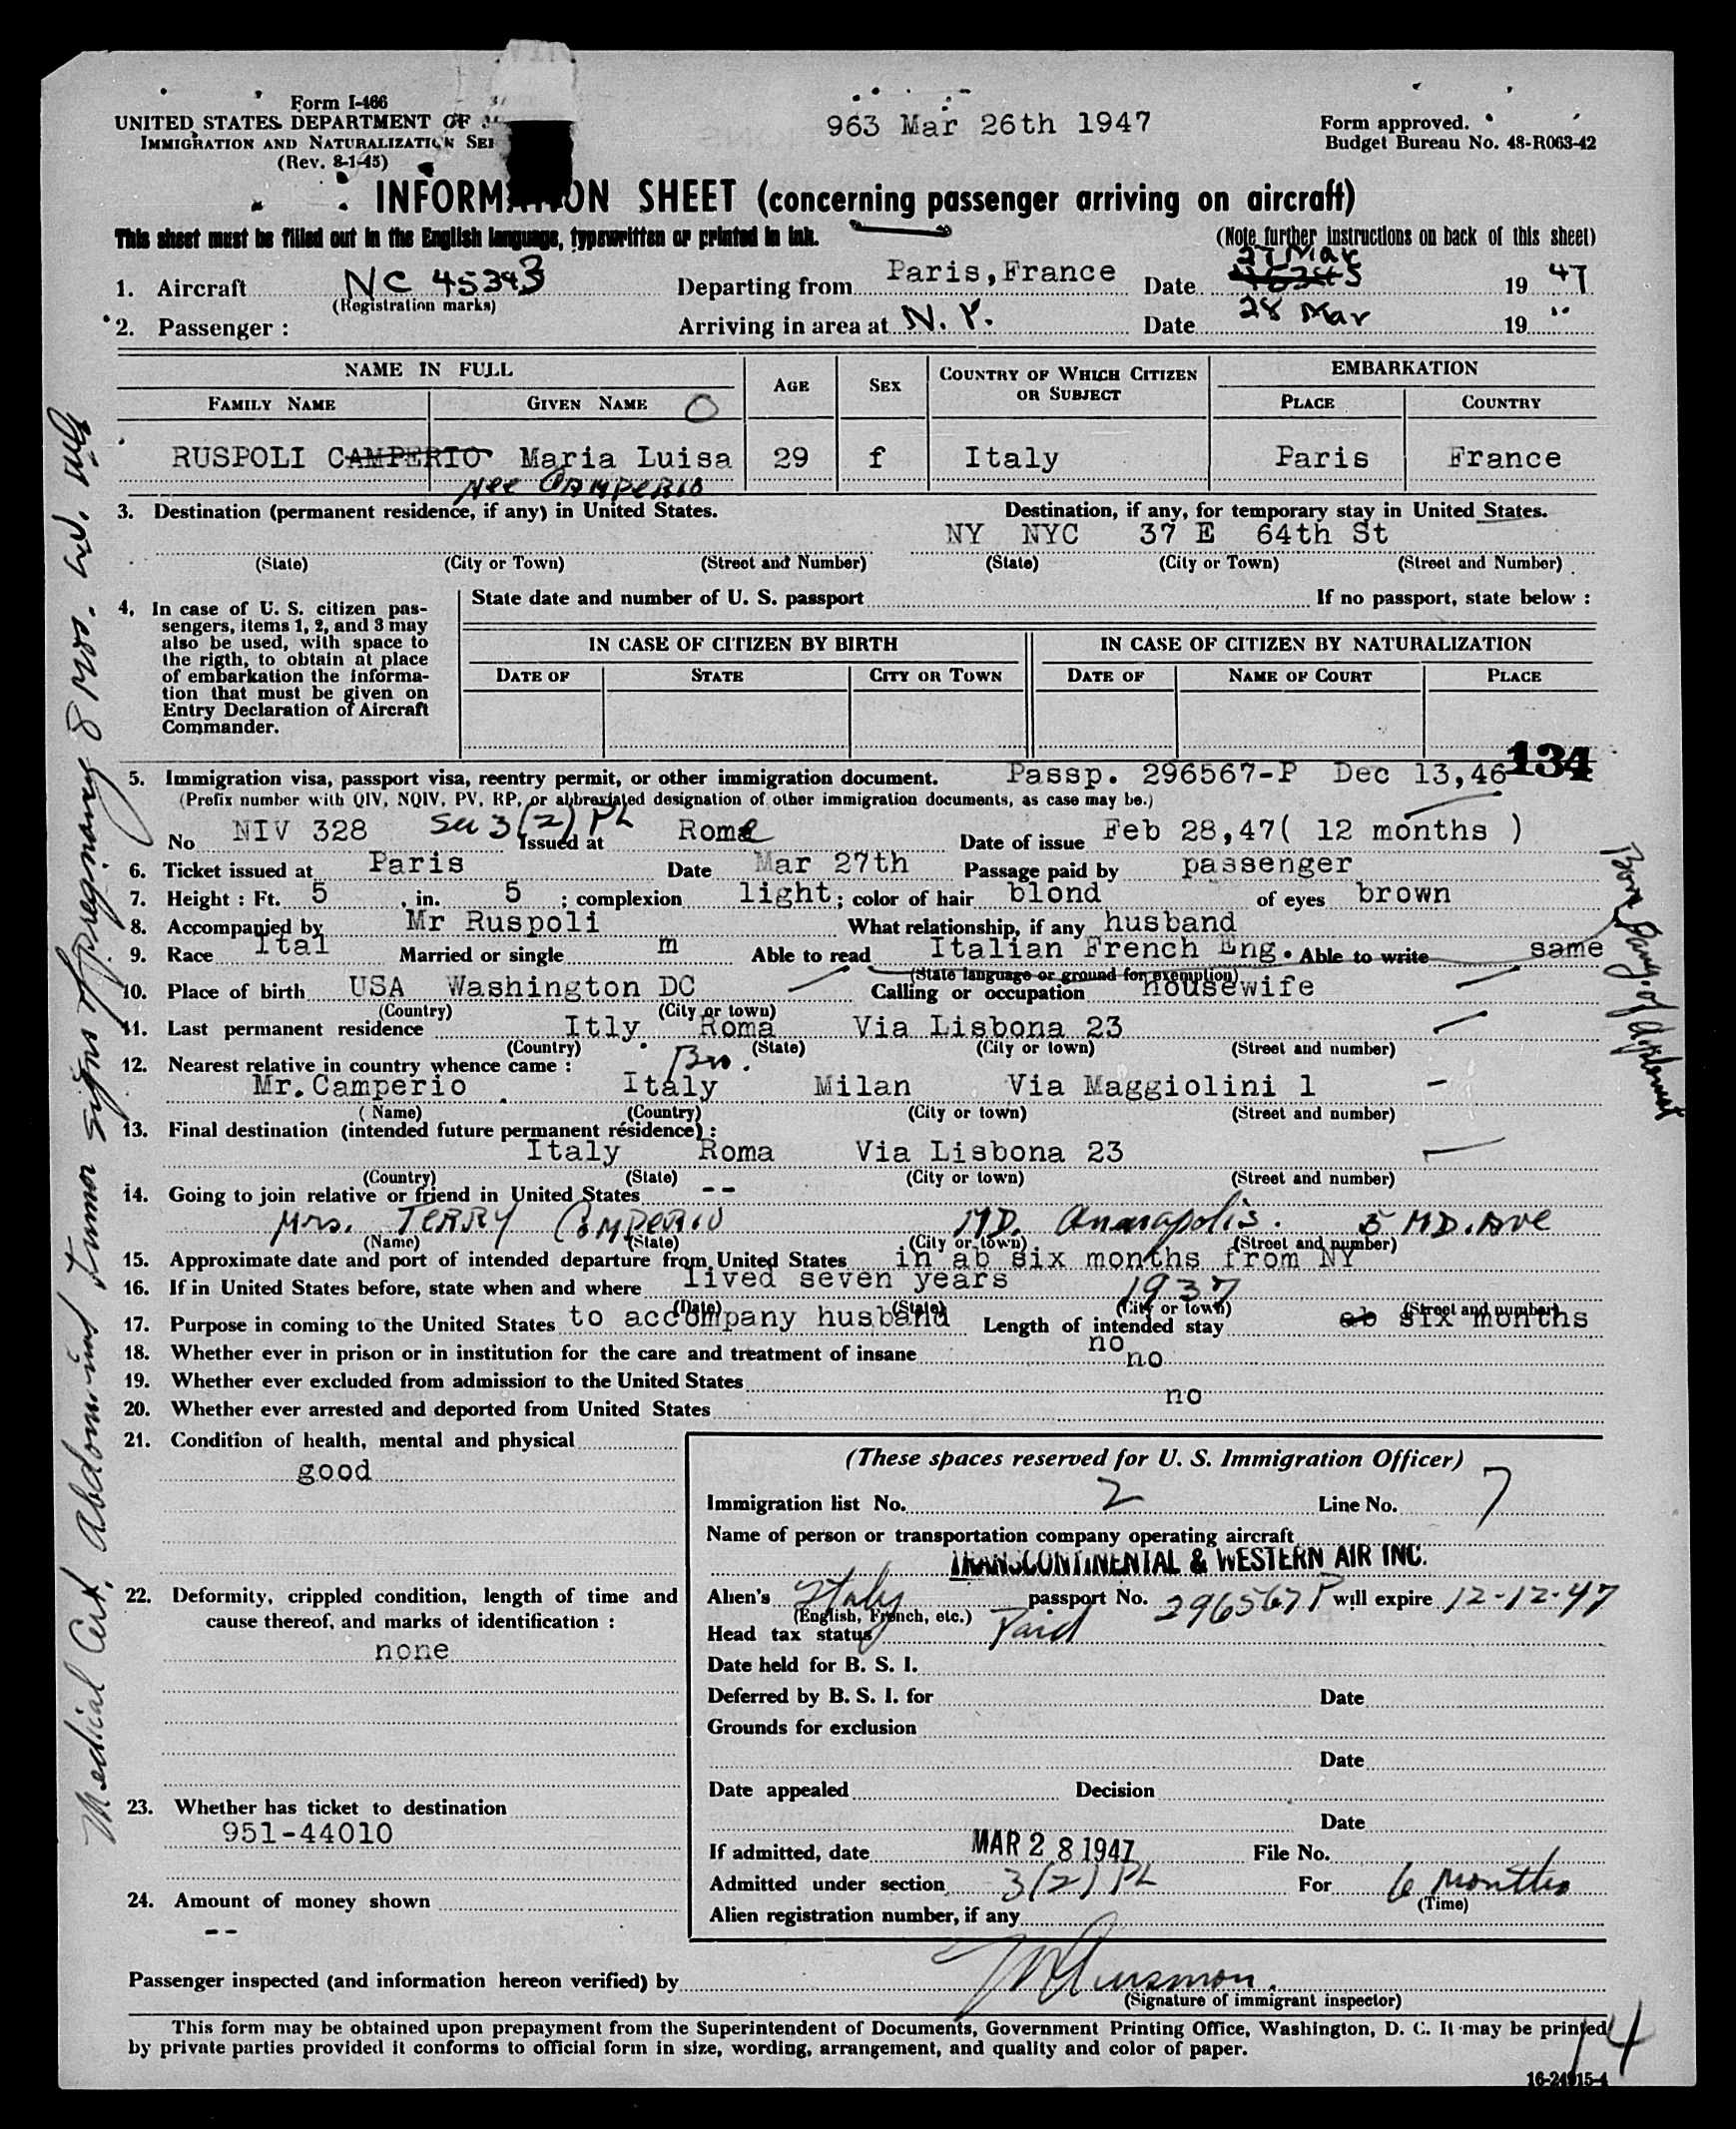 Form I-466
UNITED STATES DEPARTMENT OF
IMMIGRATION AND NATURALIZATION SER
(Rev. 8-1-45)
963 Mar 26th 1947
Form approved.
Budget Bureau No. 48-R063-42
INFORMATION SHEET (concerning passenger arriving on aircraft)
This sheet must be filled out in the English language, typewritten or printed in ink.
(Note further instructions on back of this sheet)
27 Mar
1. Aircraft NC 45343 Departing from Paris,France Date 19 47
(Registration marks)
2. Passenger : Arriving in area at N.Y. Date 28 Mar 19 "
NAME IN FULL AGE SEX COUNTRY OF WHICH CITIZEN OR SUBJECT EMBARKATION
FAMILY NAME GIVEN NAME O PLACE COUNTRY
RUSPOLI CAMPERIO Maria Luisa 29 f Italy Paris France
nee CAMPERIO
3. Destination (permanent residence, if any) in United States. Destination, if any, for temporary stay in United States.
NY NYC 37 E 64th St
(State) (City or Town) (Street and Number) (State) (City or Town) (Street and Number)
4. In case of U. S. citizen pas-
sengers, items 1, 2, and 3 may
also be used, with space to
the rigth, to obtain at place
of embarkation the informa-
tion that must be given on
Entry Declaration of Aircraft
Commander.
State date and number of U. S. passport If no passport, state below :
IN CASE OF CITIZEN BY BIRTH IN CASE OF CITIZEN BY NATURALIZATION
DATE OF STATE CITY OR TOWN DATE OF NAME OF COURT PLACE
134
5. Immigration visa, passport visa, reentry permit, or other immigration document. Passp. 296567-P Dec 13,46
(Prefix number with QIV, NQIV, PV, RP, or abbreviated designation of other immigration documents, as case may be.)
No NIV 328 Sec 3(2) PL Issued at Rome Date of issue Feb 28,47( 12 months )
6. Ticket issued at Paris Date Mar 27th Passage paid by passenger
7. Height : Ft. 5 , in. 5 ; complexion light ; color of hair blond of eyes brown
8. Accompanied by Mr Ruspoli What relationship, if any husband
9. Race Ital Married or single m Able to read Italian French Eng. Able to write same
(State language or ground for exemption)
10. Place of birth USA Washington DC Calling or occupation housewife
(Country) (City or town)
11. Last permanent residence Itly Roma Via Lisbona 23
(Country) (State) (City or town) (Street and number)
12. Nearest relative in country whence came : Bro.
Mr.Camperio Italy Milan Via Maggiolini 1
(Name) (Country) (City or town) (Street and number)
13. Final destination (intended future permanent résidence) :
Italy Roma Via Lisbona 23
(Country) (State) (City or town) (Street and number)
14. Going to join relative or friend in United States --
Mrs. TERRY CAMPERIO MD. Annapolis. 5 MD. Ave
(Name) (State) (City or town) (Street and number)
15. Approximate date and port of intended departure from United States in ab six months from NY
16. If in United States before, state when and where lived seven years 1937
(Date) (State) (City or town) (Street and number)
17. Purpose in coming to the United States to accompany husband Length of intended stay ab six months
18. Whether ever in prison or in institution for the care and treatment of insane no
no
19. Whether ever excluded from admission to the United States
20. Whether ever arrested and deported from United States no
21. Condition of health, mental and physical
good
22. Deformity, crippled condition, length of time and
cause thereof, and marks of identification :
none
23. Whether has ticket to destination
951-44010
24. Amount of money shown
--
(These spaces reserved for U. S. Immigration Officer)
Immigration list No. 2 Line No. 7
Name of person or transportation company operating aircraft
TRANSCONTINENTAL & WESTERN AIR INC.
Alien's Italy passport No. 296567P will expire 12-12-47
(English, French, etc.)
Head tax status Paid
Date held for B. S. I.
Deferred by B. S. I. for Date
Grounds for exclusion
Date
Date appealed Decision
Date
If admitted, date MAR 28 1947 File No.
Admitted under section 3(2) PL For 6 Months
(Time)
Alien registration number, if any
Passenger inspected (and information hereon verified) by
(Signature of immigrant inspector)
This form may be obtained upon prepayment from the Superintendent of Documents, Government Printing Office, Washington, D. C. It may be printed
by private parties provided it conforms to official form in size, wording, arrangement, and quality and color of paper.
14
16-24915-4
Medical Cert. Abdominal tumor signs of pregnancy 8 Mos.
Born Daug. of diplomat